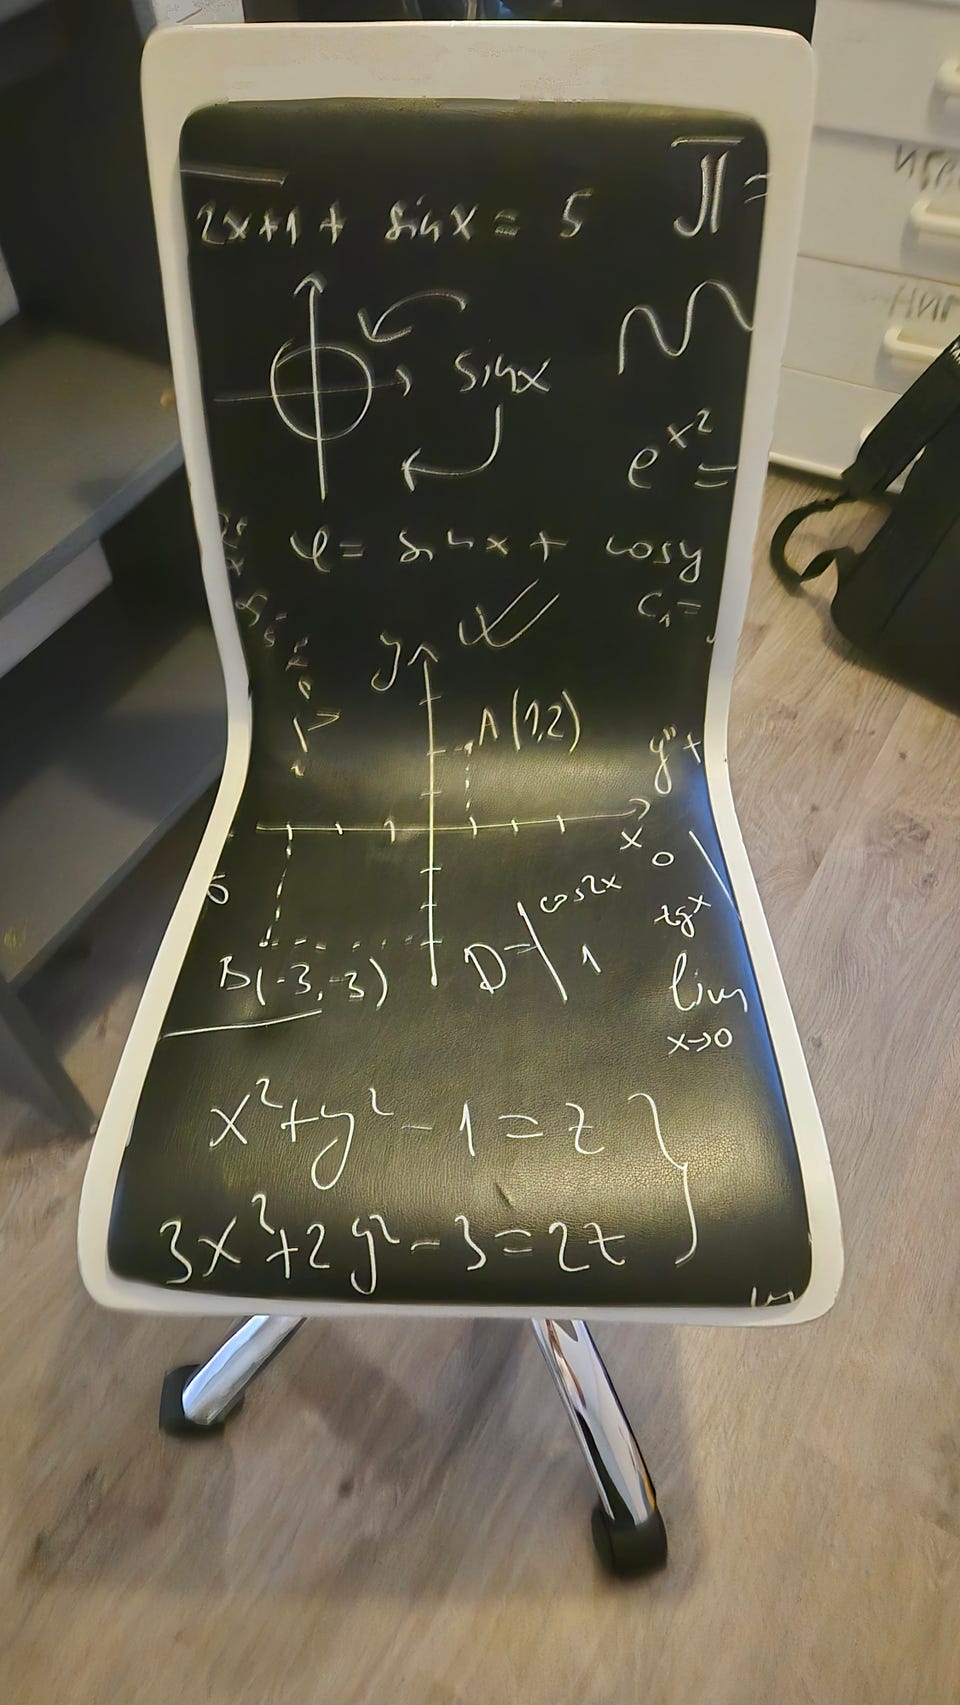 2x+1+ sinx = 5
π =
sinx
e^x² =
φ = sinx + cosy
c₁ =
y
A(1,2)
y" +
x
0
cos2x
tgx
B(-3,-3)
D = 1
lim
x→0
x²+y²-1=z
3x³+2y²-3=2z